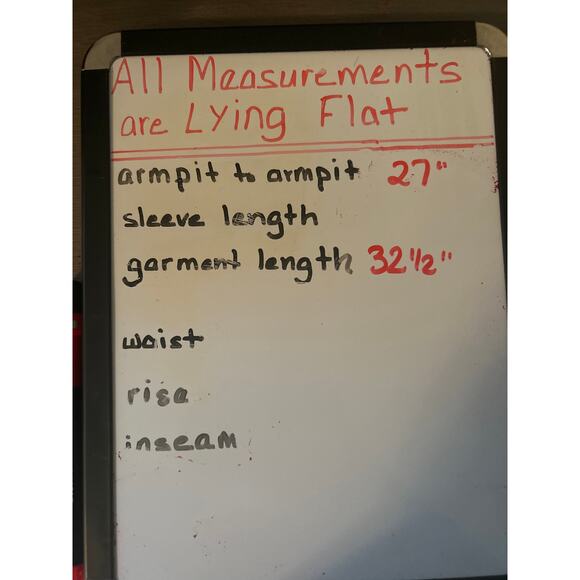 All Measurements
are Lying Flat
armpit to armpit 27"
sleeve length
garment length 32 1/2"
waist
rise
inseam